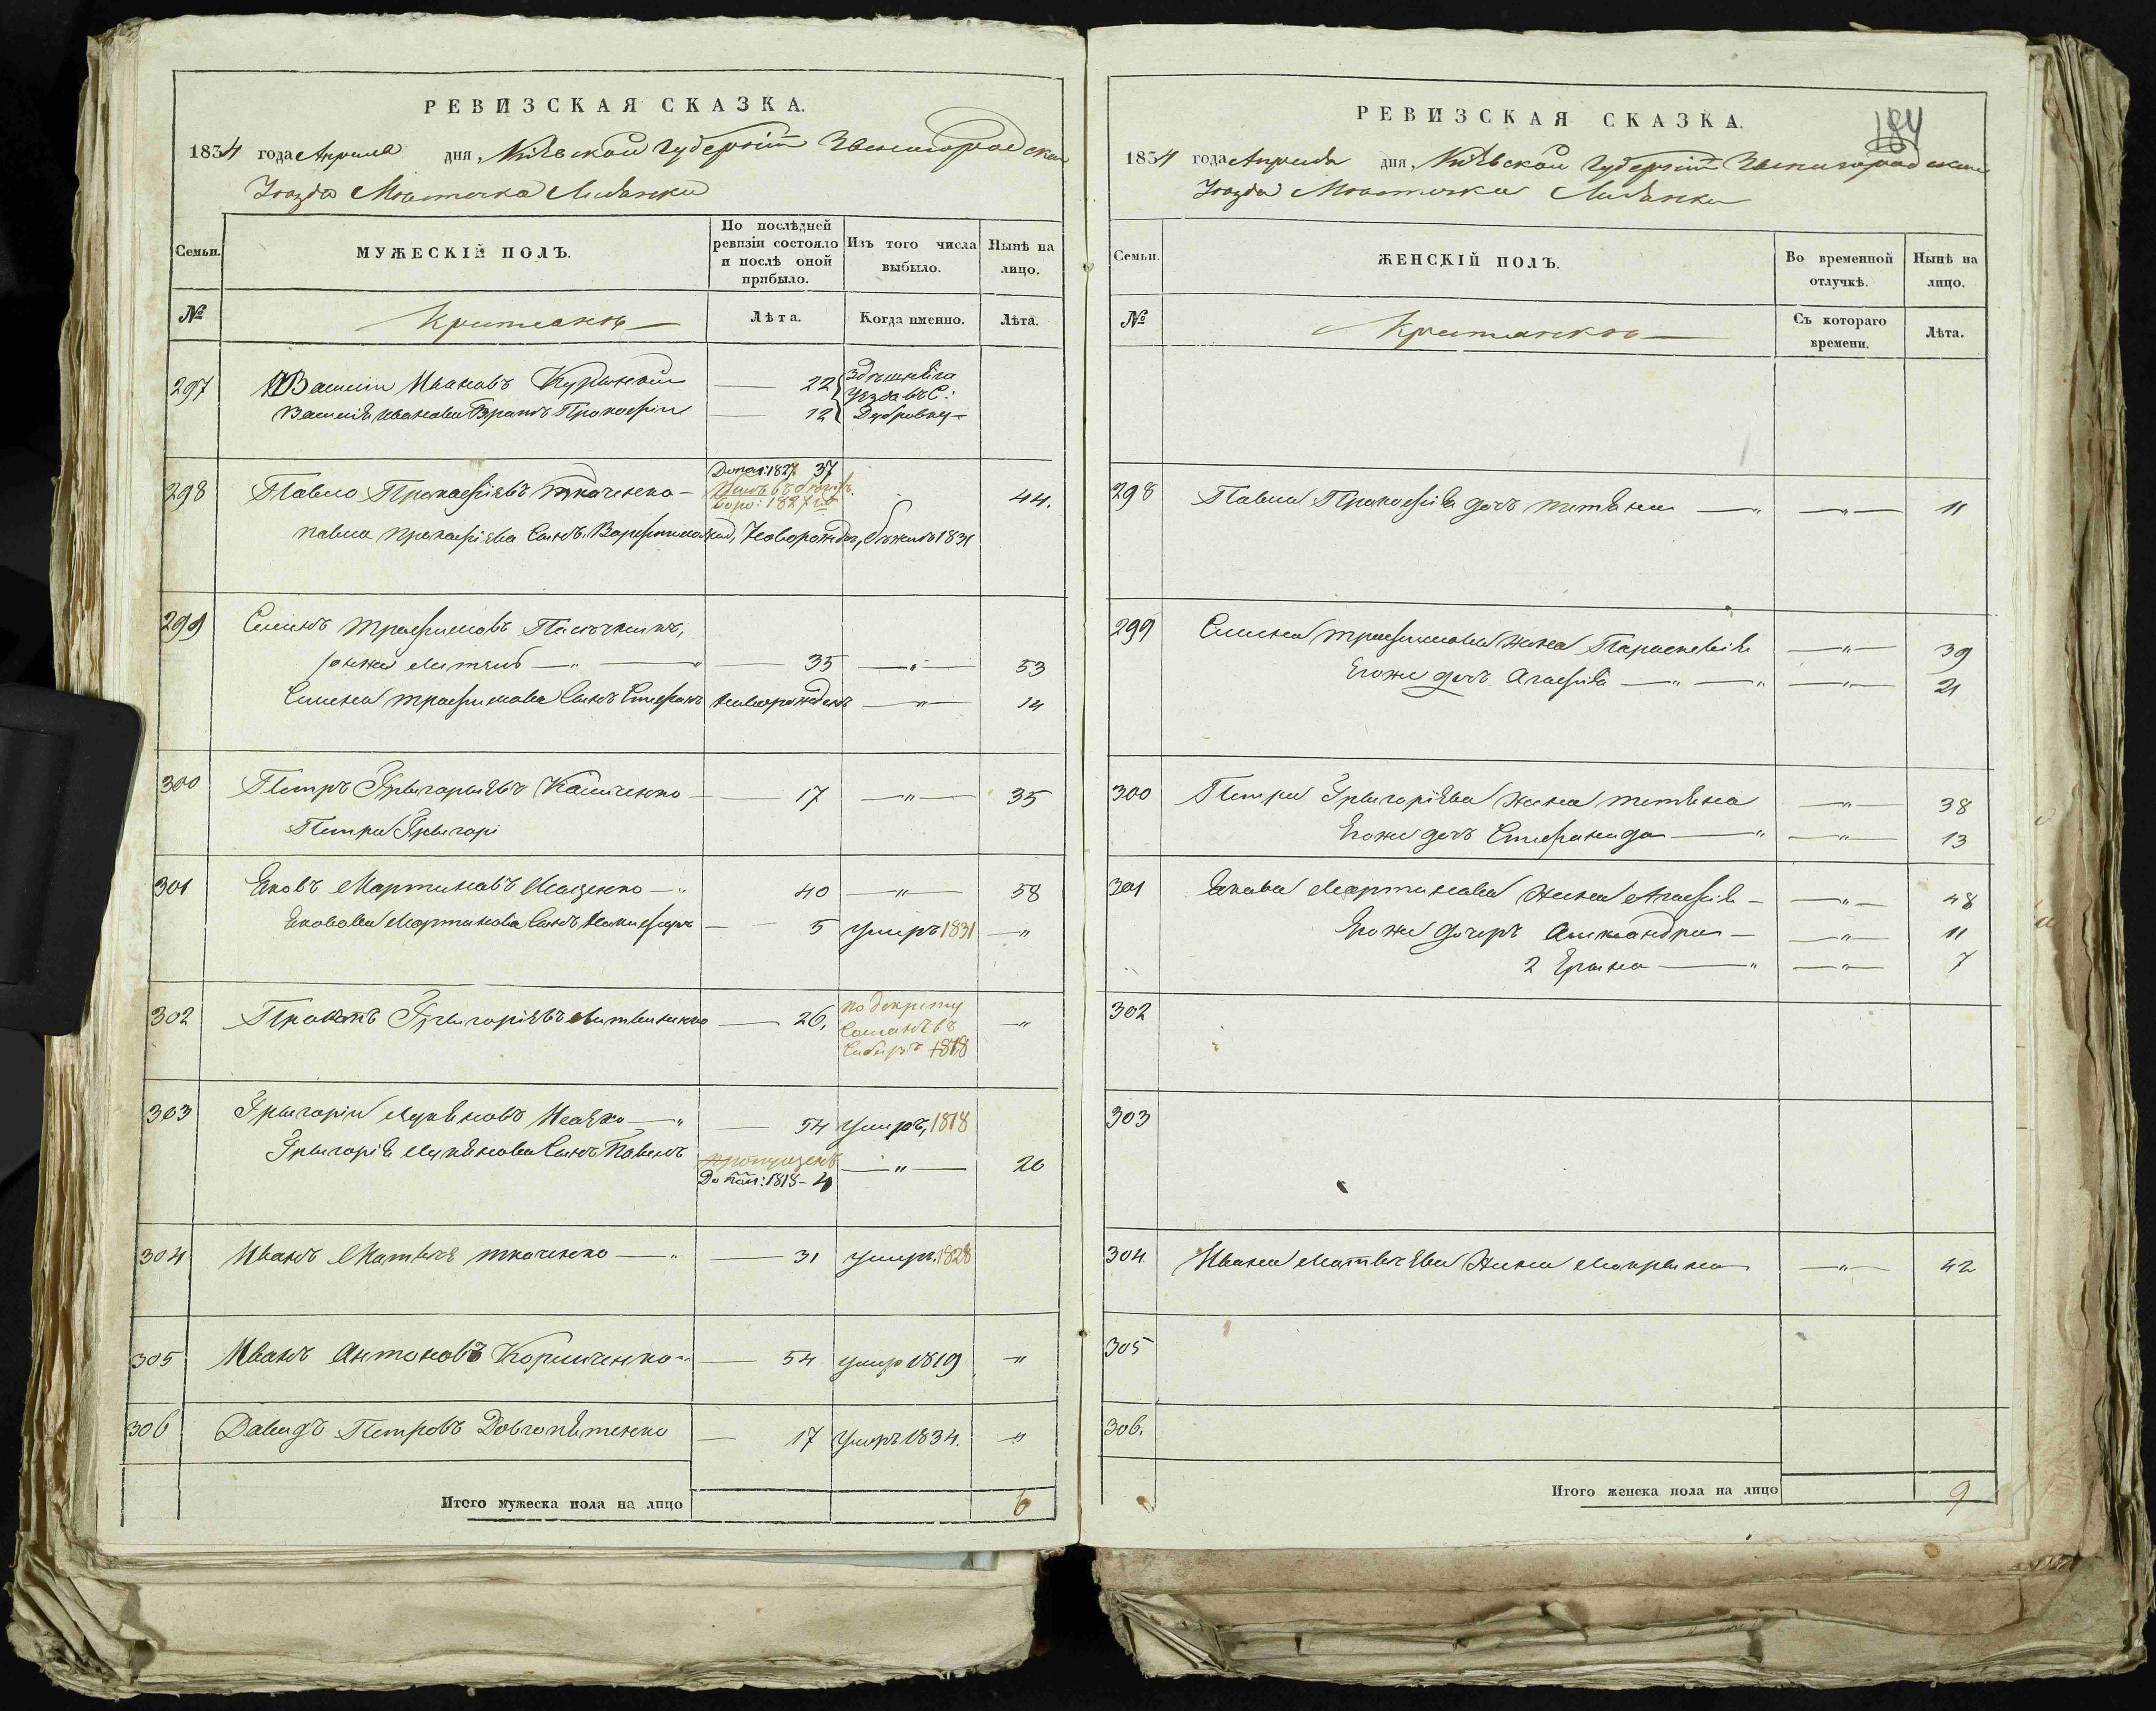 РЕВИЗСКАЯ СКАЗКА.
1834 года Апреля дня, Киевской Губерніи Звенигородскаго
Уезда Местечка Лисянки
Семьи.
МУЖЕСКІЙ ПОЛЪ.
По послѣдней ревизіи состояло и послѣ оной прибыло.
Изъ того числа выбыло.
Нынѣ на лицо.
№
Крестьянъ
Лѣта.
Когда именно.
Лѣта.
297 Василій Ивановъ — 22 Здѣшнѣго Уѣзда въ С:
Василія Иванова Братъ Прокофій — 12 Дубровку
298 Павло Прокофіевъ Ткаченко — 37 44.
1827
Павла Прокофіева Сынъ Варфоломей, Новорожден, бежалъ 1831
299 Семенъ Трофимовъ
— 35 — " — 53
Семена Трофимова Сынъ Стефанъ новорожденъ — " — 14
300 Петръ Григорьевъ — 17 — " — 35
Петра Григорі
301 Яковъ Мартиновъ Маценко — " 40 — " — 58
Якова Мартинова Сынъ Никифоръ — 5 умеръ 1831 — "
302 Григоріевъ Литвиненко — 26, по декрету Сосланъ въ Сибирь 1818 — "
303 Григорій — " — 54 умеръ, 1818
Григорія Сынъ Павелъ пропущенъ — " — 20
1818 – 4
304 Иванъ Ткаченко — " — 31 умеръ. 1828
305 Иванъ Антоновъ — 54 умер 1819 — "
306 Давидъ Петровъ — 17 Умеръ 1834. — "
Итого мужеска пола на лицо 6
РЕВИЗСКАЯ СКАЗКА.
184
1834 года Апреля дня, Киевской Губерніи Звенигородскаго
Уезда Местечка Лисянки
Семьи.
ЖЕНСКІЙ ПОЛЪ.
Во временной отлучкѣ.
Нынѣ на лицо.
№
Крестьянкъ
Съ котораго времени.
Лѣта.
298 Павла Прокофіева дочъ Тетяна — " — " — 11
299 Семена Трофимова Жена Параскевія — " — 39
Егоже дочъ Агафія — " — " — " — 21
300 Петра Григоріева Жена Тетяна — " — 38
Егоже дочъ Стефанида — " — " — 13
301 Якова Мартинова Жена Агафія — — " — 48
Егоже дочеръ Александра — — " — 11
2 Ерина — " — " — 7
302
303
304 Ивана Жена Мокрына — " — 42
305
306.
Итого женска пола на лицо 9